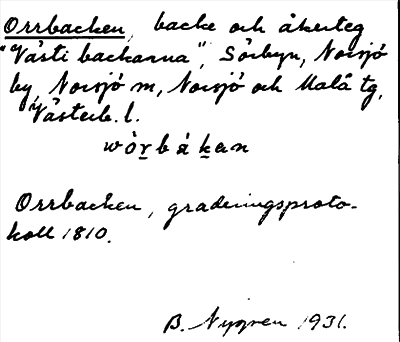 Orrbacken, backe och åkerteg
"Västi backarna", Sörbyn, Norsjö
by, Norsjö sn, Norsjö och Malå tg,
Västerb. l.
wòr̲bák̲an
Orrbacken, graderingsproto-
koll 1810.
B. Nygren 1931.